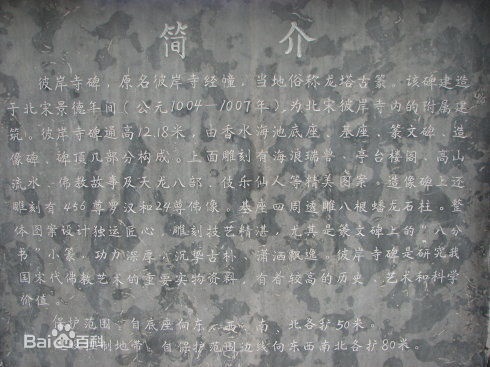 简介
彼岸寺碑，原名彼岸寺经幢，当地俗称龙塔古篆。该碑建造
于北宋景德年间（公元1004—1007年），为北宋彼岸寺内的附属建
筑。彼岸寺碑通高12.18米，由香水海池底座、基座、篆文碑、造
像碑、碑顶几部分构成。上面雕刻有海浪瑞兽、亭台楼阁、高山
流水、佛教故事及天龙八部、伎乐仙人等精美图案。造像碑上还
雕刻有456尊罗汉和24尊佛像。基座四周透雕八根蟠龙石柱。整
体图案设计独运匠心，雕刻技艺精湛，尤其是篆文碑上的“八分
书”小篆，功力深厚，沉挚古朴、潇洒飘逸。彼岸寺碑是研究我
国宋代佛教艺术的重要实物资料，有着较高的历史、艺术和科学
价值。
保护范围：自底座向东、西、南、北各扩50米。
控制地带：自保护范围边线向东西南北各扩80米。
Bai百科